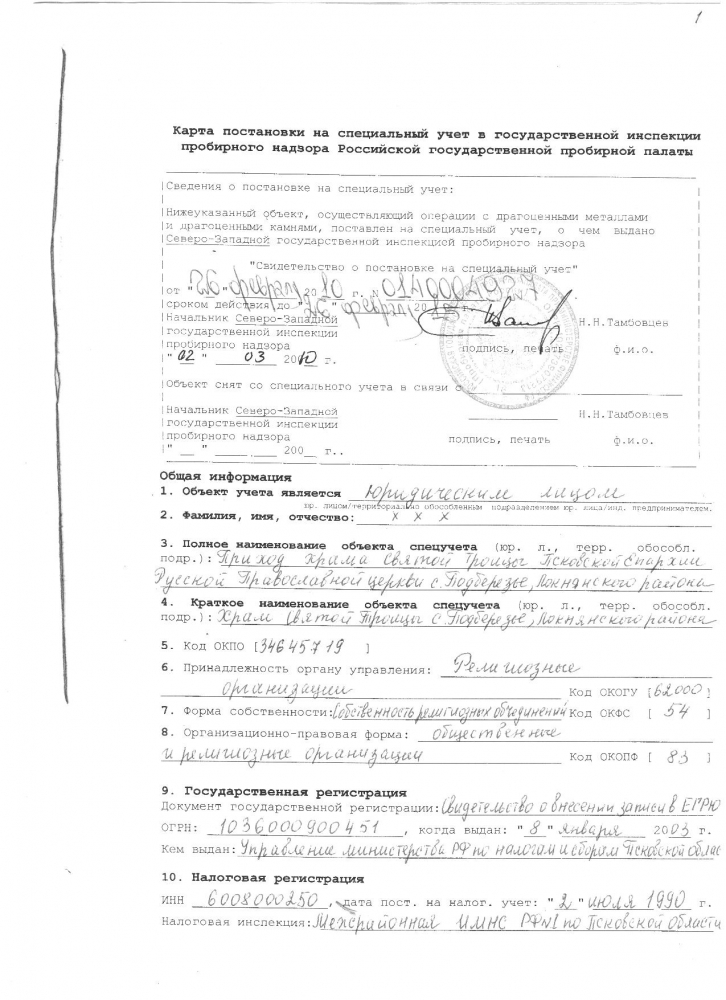 1
Карта постановки на специальный учет в государственной инспекции
пробирного надзора Российской государственной пробирной палаты
Сведения о постановке на специальный учет:
Нижеуказанный объект, осуществляющий операции с драгоценными металлами
и драгоценными камнями, поставлен на специальный учет, о чем выдано
Северо-Западной государственной инспекцией пробирного надзора
"Свидетельство о постановке на специальный учет"
от "26" февраля 2010 г. № 0140004927
сроком действия до "26" февраля 20 г.
Начальник Северо-Западной Н.Н.Тамбовцев
государственной инспекции
пробирного надзора подпись, печать ф.и.о.
"02" 03 2010 г.
Объект снят со специального учета в связи с
Начальник Северо-Западной Н.Н.Тамбовцев
государственной инспекции
пробирного надзора подпись, печать ф.и.о.
"__" _____ 200__ г..
Общая информация
1. Объект учета является юридическим лицом
юр. лицом/территориально обособленным подразделением юр. лица/инд. предпринимателем.
2. Фамилия, имя, отчество: x x x
3. Полное наименование объекта спецучета (юр. л., терр. обособл.
подр.): Приход храма Святой Троицы Псковской Епархии
Русской Православной церкви с. Подберезье, Локнянского района
4. Краткое наименование объекта спецучета (юр. л., терр. обособл.
подр.): Храм Святой Троицы с. Подберезье, Локнянского района
5. Код ОКПО [34645719 ]
6. Принадлежность органу управления: Религиозные
организации Код ОКОГУ [62000]
7. Форма собственности: Собственность религиозных объединений Код ОКФС [ 54 ]
8. Организационно-правовая форма: общественные
и религиозные организации Код ОКОПФ [ 83 ]
9. Государственная регистрация
Документ государственной регистрации: Свидетельство о внесении записи в ЕГРЮ
ОГРН: 1036000900451, когда выдан: "8" января 2003 г.
Кем выдан: Управление министерства РФ по налогам и сборам Псковской облас
10. Налоговая регистрация
ИНН 6008000250, дата пост. на налог. учет: "2" июля 1990 г.
Налоговая инспекция: Межрайонная ИМНС РФ №1 по Псковской области